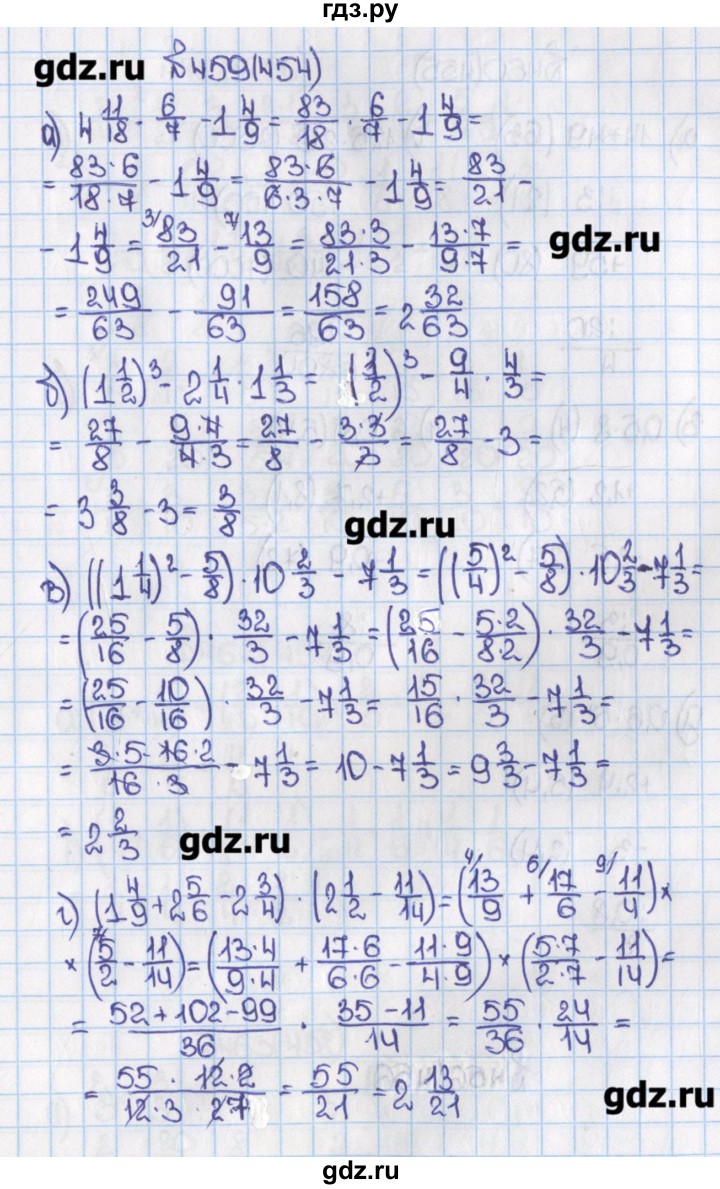 гдз.ру
gdz.ru №459(454)
а) 4 11/18 · 6/7 - 1 4/9 = 83/18 · 6/7 - 1 4/9 =
= 83·6/18·7 - 1 4/9 = 83·6/6·3·7 - 1 4/9 = 83/21 -
- 1 4/9 = 3/ 83/21 - 7/ 13/9 = 83·3/21·3 - 13·7/9·7 =
gdz.ru
= 249/63 - 91/63 = 158/63 = 2 32/63
б) (1 1/2)³ - 2 1/4 · 1 1/3 = (3/2)³ - 9/4 · 4/3 =
= 27/8 - 9·4/4·3 = 27/8 - 3·3/3 = 27/8 - 3 =
= 3 3/8 - 3 = 3/8
gdz.ru
в) ((1 1/4)² - 5/8) · 10 2/3 - 7 1/3 = ((5/4)² - 5/8) · 10 2/3 - 7 1/3 =
= (25/16 - 5/8) · 32/3 - 7 1/3 = (25/16 - 5·2/8·2) · 32/3 - 7 1/3 =
= (25/16 - 10/16) · 32/3 - 7 1/3 = 15/16 · 32/3 - 7 1/3 =
= 3·5·16·2/16·3 - 7 1/3 = 10 - 7 1/3 = 9 3/3 - 7 1/3 =
= 2 2/3
gdz.ru
г) (1 4/9 + 2 5/6 - 2 3/4) · (2 1/2 - 11/14) = (4/ 13/9 + 6/ 17/6 - 9/ 11/4) ×
× (7/ 5/2 - 11/14) = (13·4/9·4 + 17·6/6·6 - 11·9/4·9) × (5·7/2·7 - 11/14) =
= 52+102-99/36 · 35-11/14 = 55/36 · 24/14 =
= 55·12·2/12·3·27 = 55/21 = 2 13/21
gdz.ru
gdz.ru